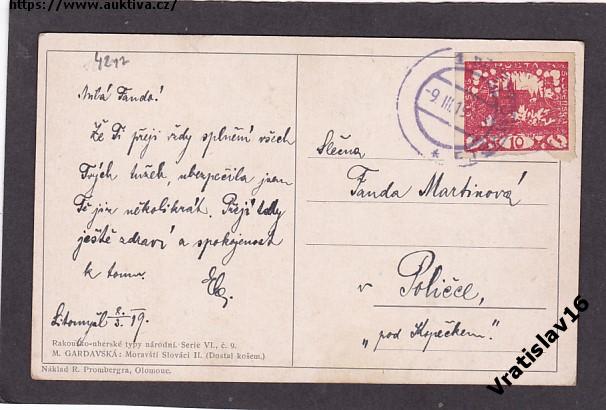 https://www.auktiva.cz/
4217
Milá Fando!
Že Ti přeji vždy splnění všech
Tvých tužeb, ubezpečila jsem
Ti již několikrát. Přeji tedy
ještě zdraví a spokojenost
k tomu.
Litomyšl 8./3. 19.
Rakousko-uherské typy národní. Serie VI., č. 9.
M. GARDAVSKÁ: Moravští Slováci II. (Dostal košem.)
Náklad R. Prombergra, Olomouc.
-9.III.19
10
Slečna
Fanda Martinová
v Poličce,
„pod Kopečkem."
Vratislav16